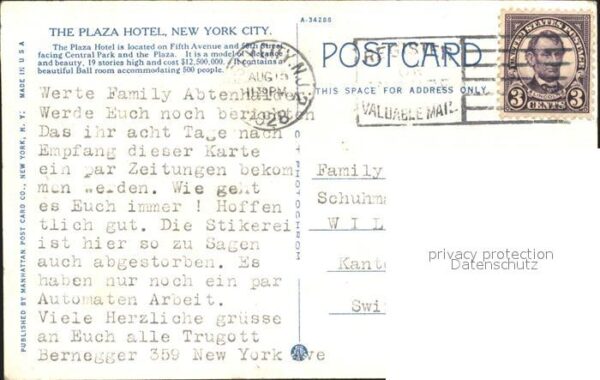 THE PLAZA HOTEL, NEW YORK CITY.
The Plaza Hotel is located on Fifth Avenue and 59th Street
facing Central Park and the Plaza. It is a model of elegance
and beauty, 19 stories high and cost $12,500,000. It contains a
beautiful Ball room accommodating 500 people.
A-34286
POSTCARD
THIS SPACE FOR ADDRESS ONLY
MADE IN U S A
PUBLISHED BY MANHATTAN POST CARD CO., NEW YORK, N. Y.
AUG 15
1928
N.J.
VALUABLE MAIL
UNITED STATES POSTAGE
LINCOLN
3 CENTS 3
Werte Family
Werde Euch noch berichten
Das ihr acht Tage nach
Empfang dieser Karte
ein par Zeitungen bekom
men werden. Wie geht
es Euch immer ! Hoffen
tlich gut. Die Stikerei
ist hier so zu Sagen
auch abgestorben. Es
haben nur noch ein par
Automaten Arbeit.
Viele Herzliche grüsse
an Euch alle Trugott
Bernegger 359 New York Ave
Family
Schuhma
W I L
Kant
Swi
privacy protection
Datenschutz